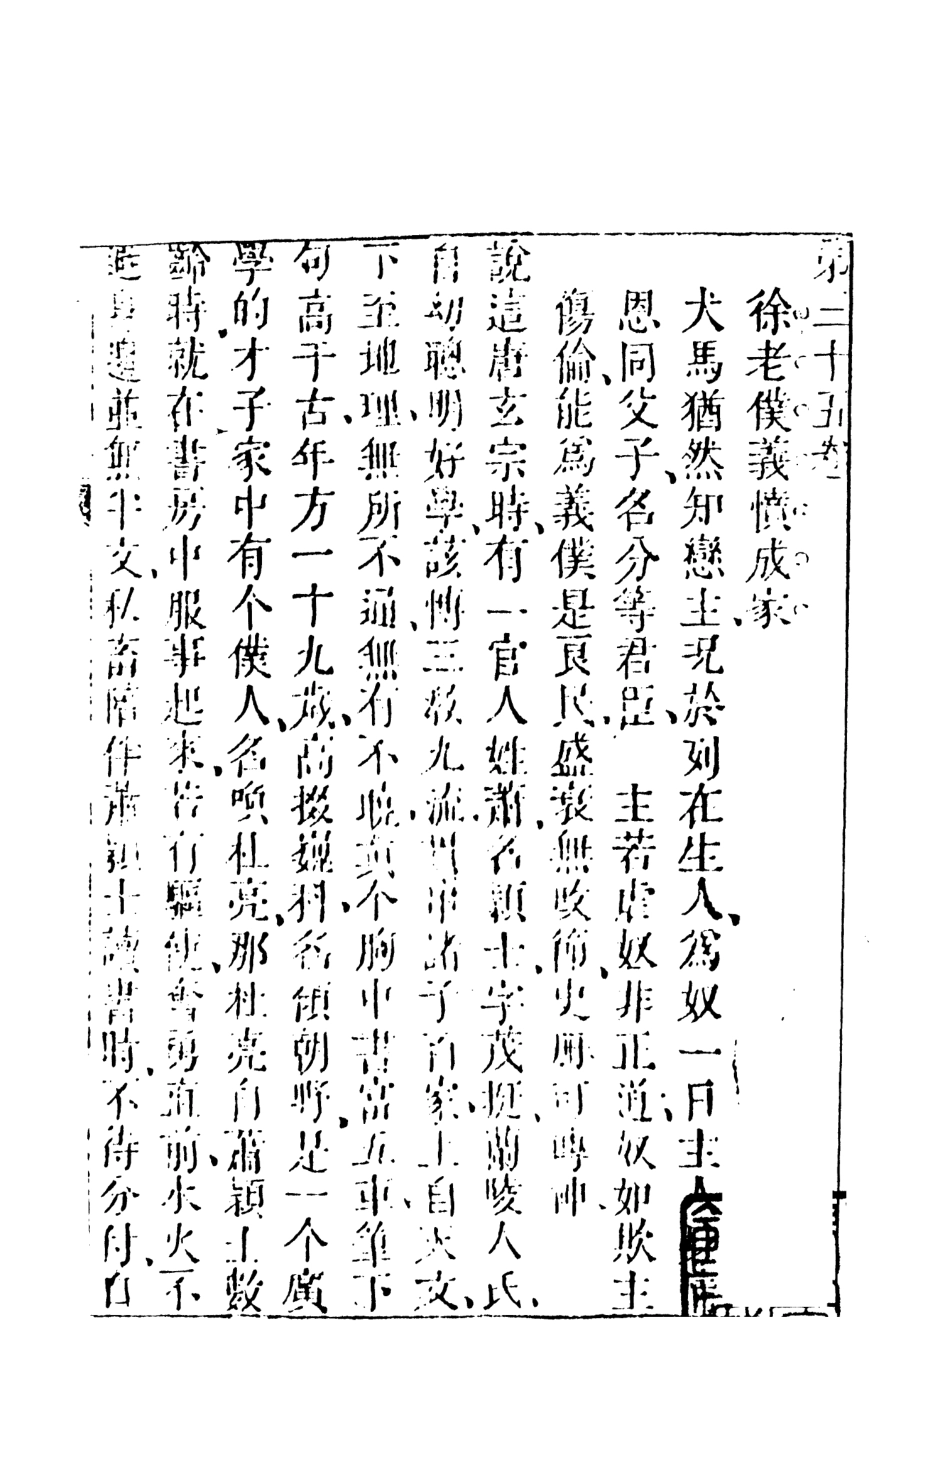 第二十五卷
徐老僕義憤成家
犬馬猶然知戀主、况於列在生人、爲奴一日主人
恩同父子、名分等君臣、　主若虐奴非正道、奴如欺主
傷倫、能爲義僕是良民、盛衰無改節、史册可傳神、
說這唐玄宗時、有一官人姓蕭、名頴士、字茂挺、蘭陵人氏、
自幼聰明好學、該博三教九流、貫串諸子百家、上自天文、
下至地理、無所不通、無有不曉、真个胸中書富五車、筆下
句高千古、年方一十九歲、高掇巍科、名傾朝野、是一个廣
學的才子、家中有个僕人、名喚杜亮、那杜亮自蕭穎士數
齡時就在書房中服事起來、若有驅使、奮勇直前、水火不
避身邊並無半文、私畜陪伴蕭頴士讀書時、不待分付、自